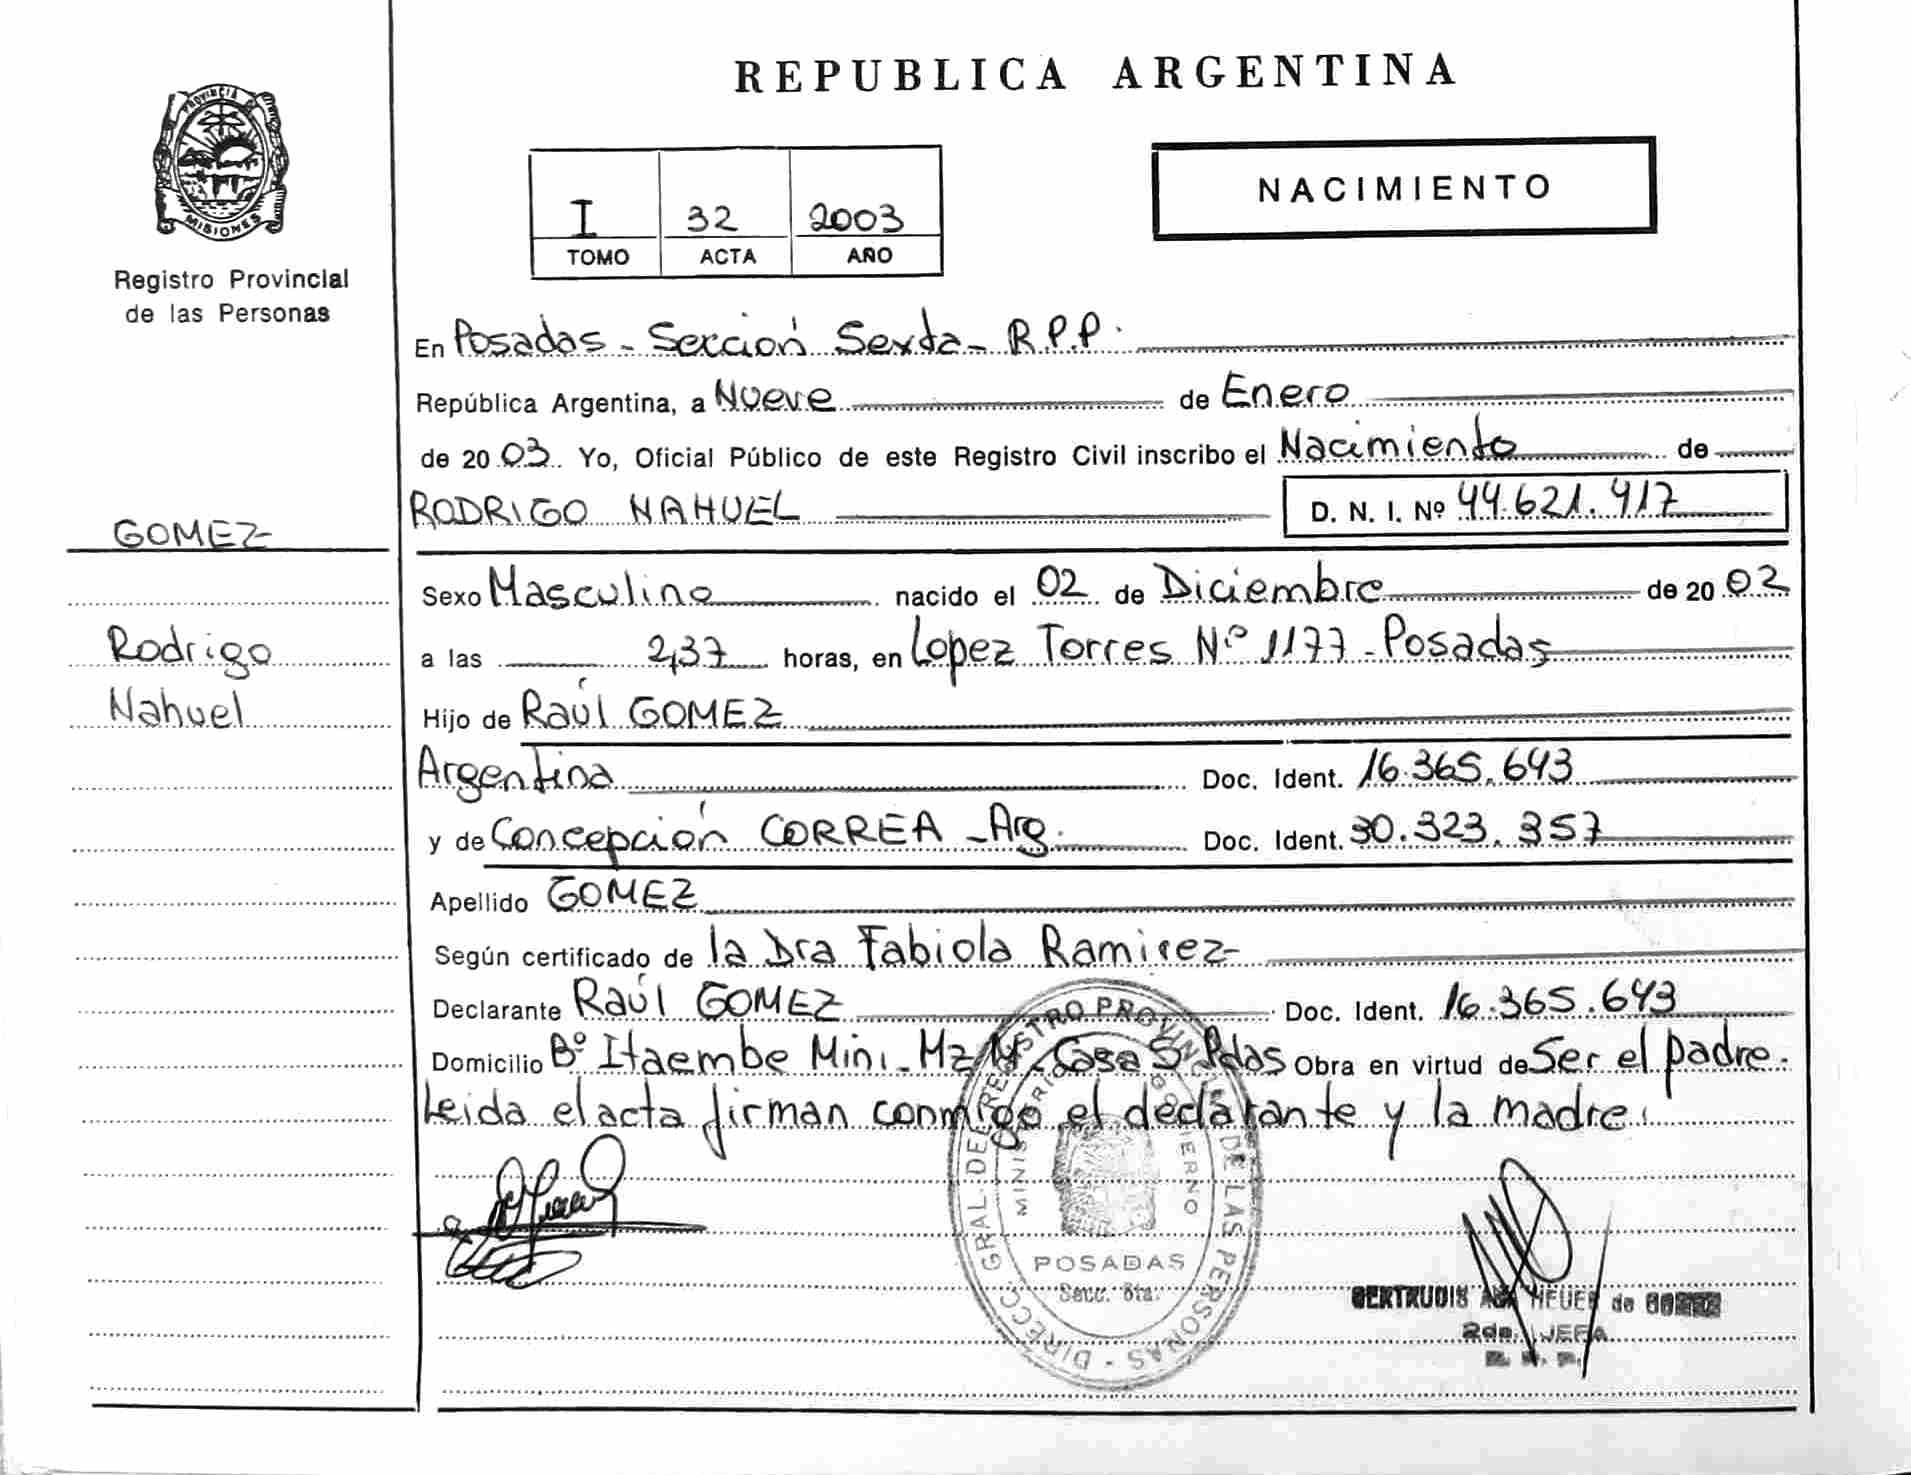 REPUBLICA ARGENTINA
PROVINCIA DE
MISIONES
Registro Provincial
de las Personas
I 32 2003
TOMO ACTA AÑO
NACIMIENTO
En Posadas - Sección Sexta - R.P.P.
República Argentina, a Nueve de Enero
de 2003. Yo, Oficial Público de este Registro Civil inscribo el Nacimiento de
RODRIGO NAHUEL D. N. I. Nº 44.621.417
GOMEZ
Rodrigo
Nahuel
Sexo Masculino nacido el 02 de Diciembre de 2002
a las 2,37 horas, en Lopez Torres Nº 1177 - Posadas
Hijo de Raúl GOMEZ
Argentina Doc. Ident. 16.365.643
y de Concepción CORREA - Arg. Doc. Ident. 30.323.357
Apellido GOMEZ
Según certificado de la Dra Fabiola Ramirez
Declarante Raúl GOMEZ Doc. Ident. 16.365.643
Domicilio Bº Itaembe Mini - Mz Casa 5 - Pdas Obra en virtud de Ser el padre.
Leida el acta firman conmigo el declarante y la madre.
DIRECC. GRAL. DEL REGISTRO PROVINCIAL DE LAS PERSONAS
MINISTERIO GOBIERNO
POSADAS
Secc. 6ta.
GERTRUDIS de
2da. JEFA